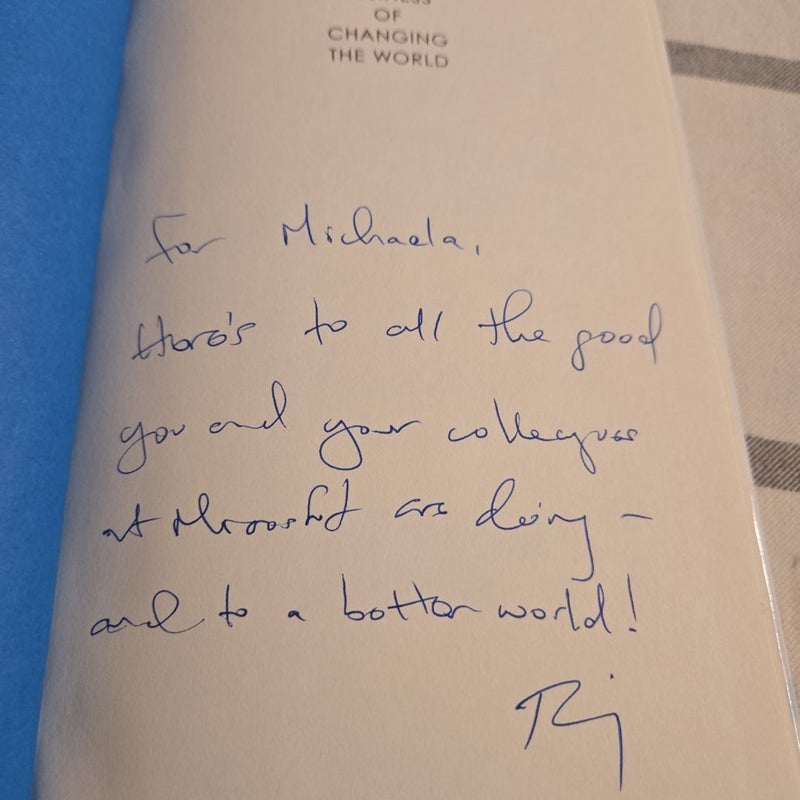 OF
CHANGING
THE WORLD
For Michaela,
Here's to all the good
you and your colleagues
at Microsoft are doing –
and to a better world!
Raj